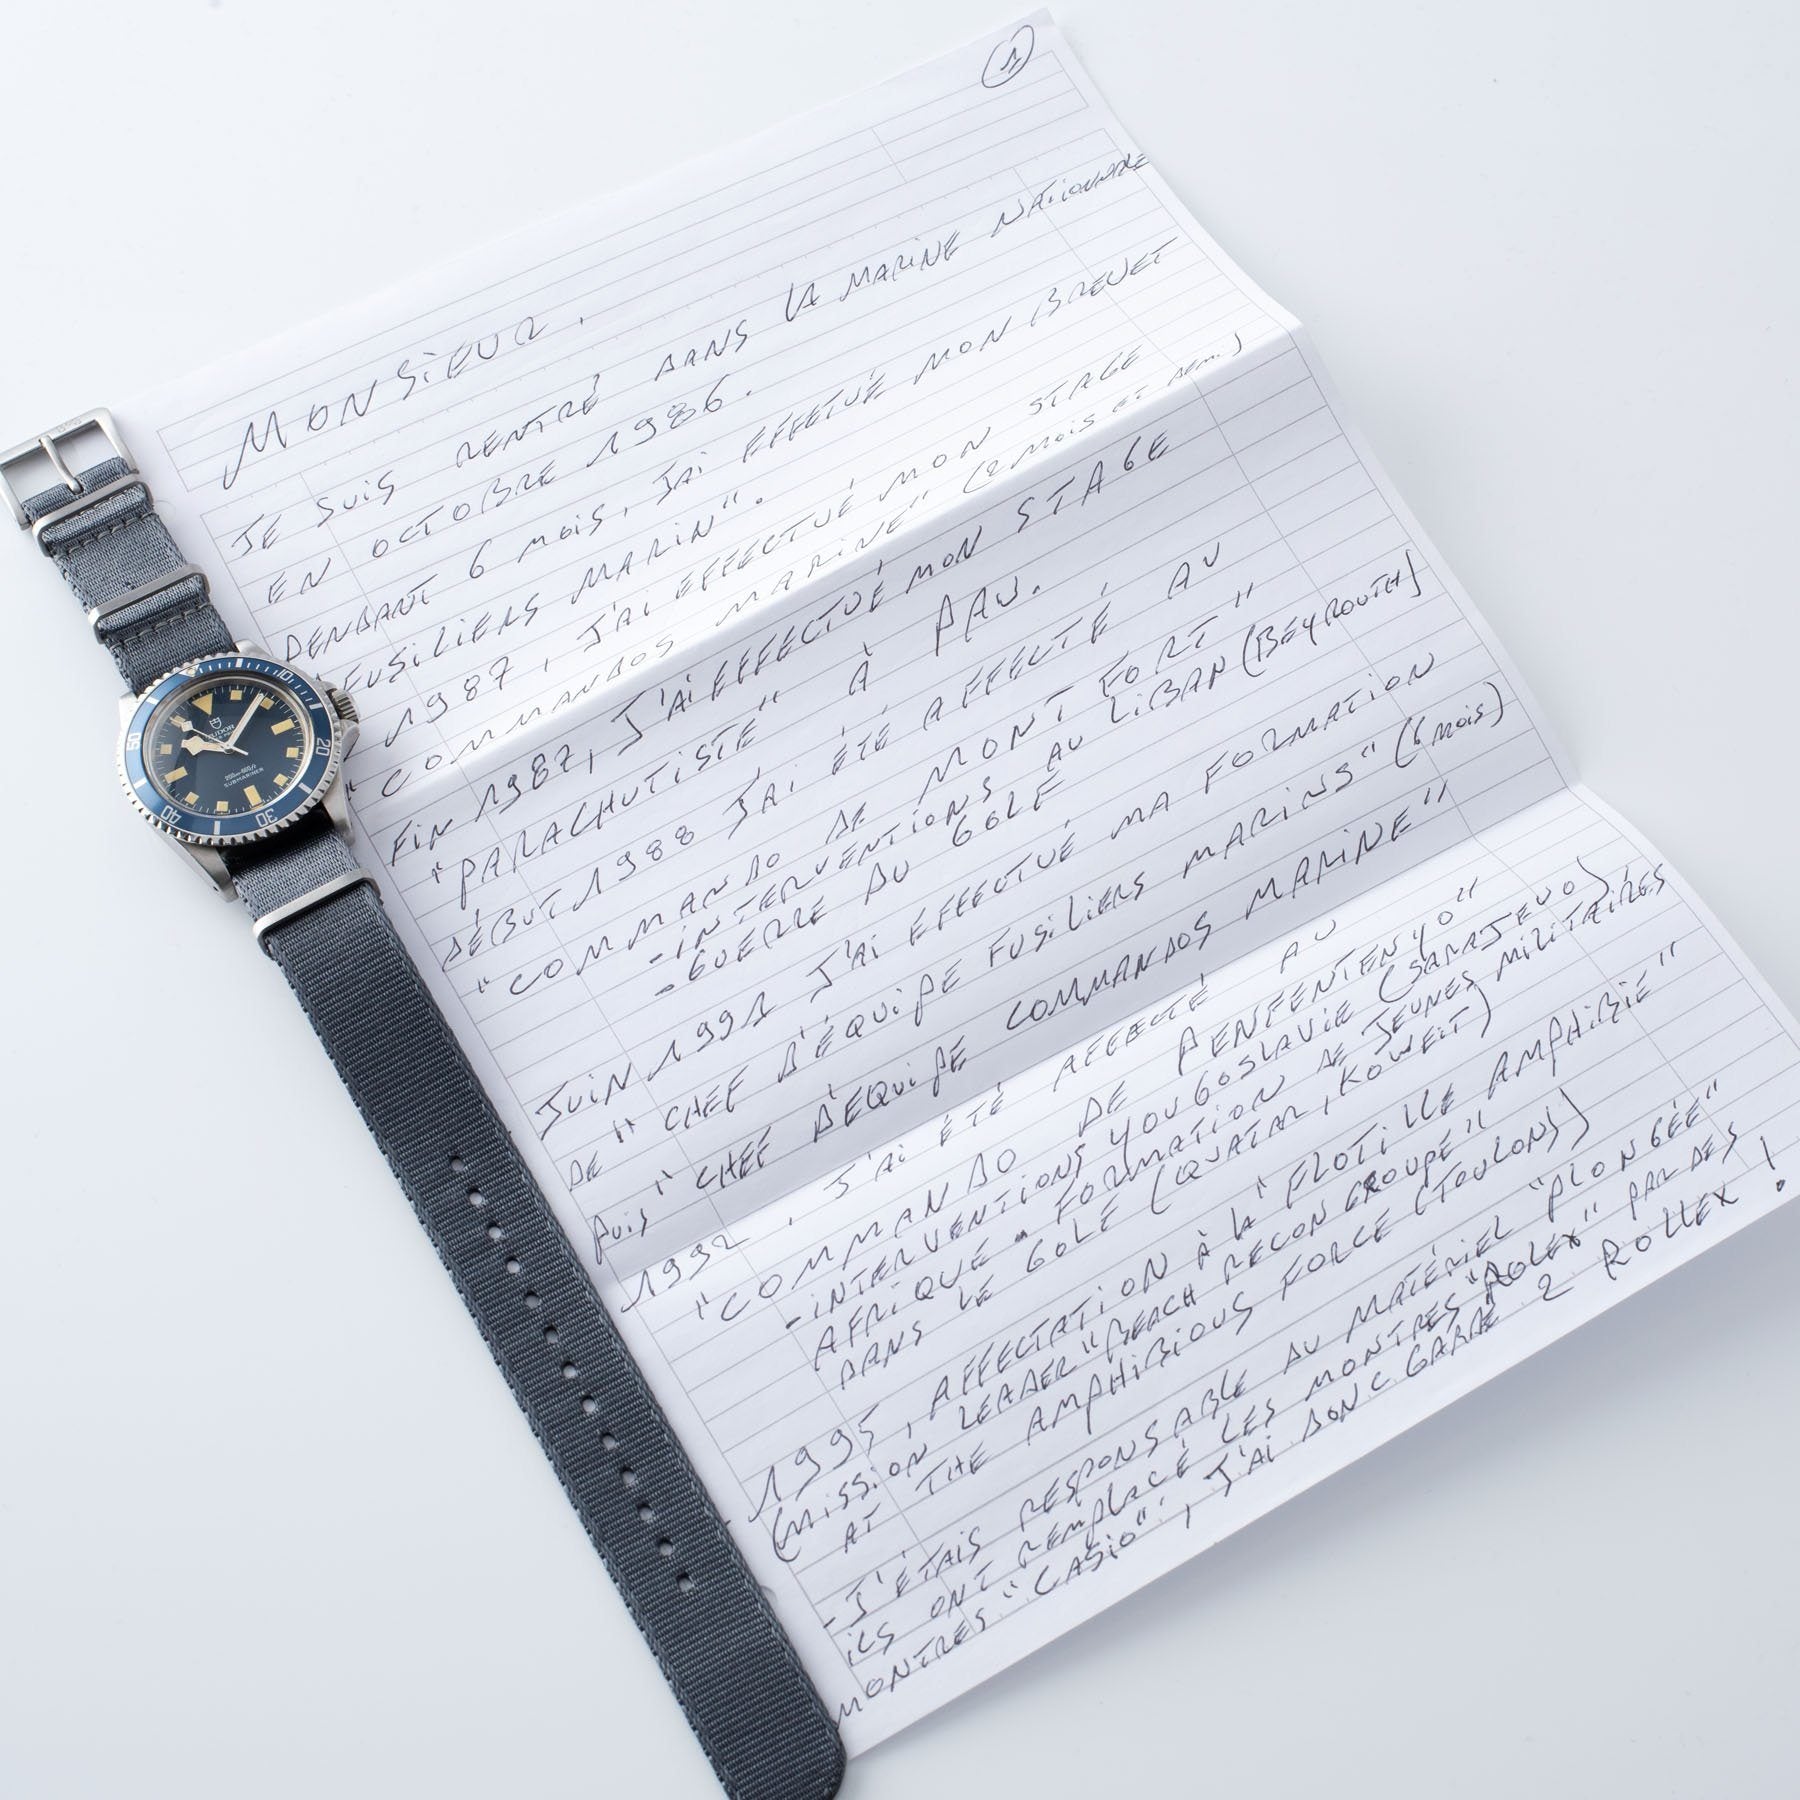 1
MONSIEUR,
JE SUIS RENTRÉ DANS LA MARINE NATIONALE
EN OCTOBRE 1986.
PENDANT 6 MOIS, J'AI EFFETUÉ MON BREVET
"FUSILIERS MARIN".
1987, J'AI EFFECTUÉ MON STAGE
"COMMANDOS MARINE" (2 MOIS ET DEM.)
FIN 1987, J'AI EFFECTUÉ MON STAGE
"PARACHUTISTE" À PAU.
DÉBUT 1988 J'AI ÉTÉ AFFECTÉ AU
"COMMANDO DE MONT FORT"
- INTERVENTIONS AU LIBAN (BEYROUTH)
- GUERRE DU GOLF
JUIN 1991 J'AI EFFECTUÉ MA FORMATION
DE "CHEF D'ÉQUIPE FUSILIERS MARINS" (6 MOIS)
PUIS "CHEF D'ÉQUIPE COMMANDOS MARINE"
1992, J'AI ÉTÉ AFFECTÉ AU
"COMMANDO DE PENFENTENYO"
- INTERVENTIONS YOUGOSLAVIE (SARAJEVO),
AFRIQUE - FORMATION DE JEUNES MILITAIRES
DANS LE GOLE (QUATAR, KOWEIT)
- 1995, AFFECTATION À LA "FLOTILLE AMPHIBIE"
(MISSION LEADER "BEACH RECON GROUPE"
AT THE AMPHIBIOUS FORCE (TOULONS)
- J'ÉTAIS RESPONSABLE DU MATÉRIEL "PLONGÉE"
ILS ONT REMPLACÉ LES MONTRES "ROLEX" PAR DES
MONTRES "CASIO", J'AI DONC GARDÉ 2 ROLLEX !
TUDOR
200m=660ft
SUBMARINER
10
20
30
40
50